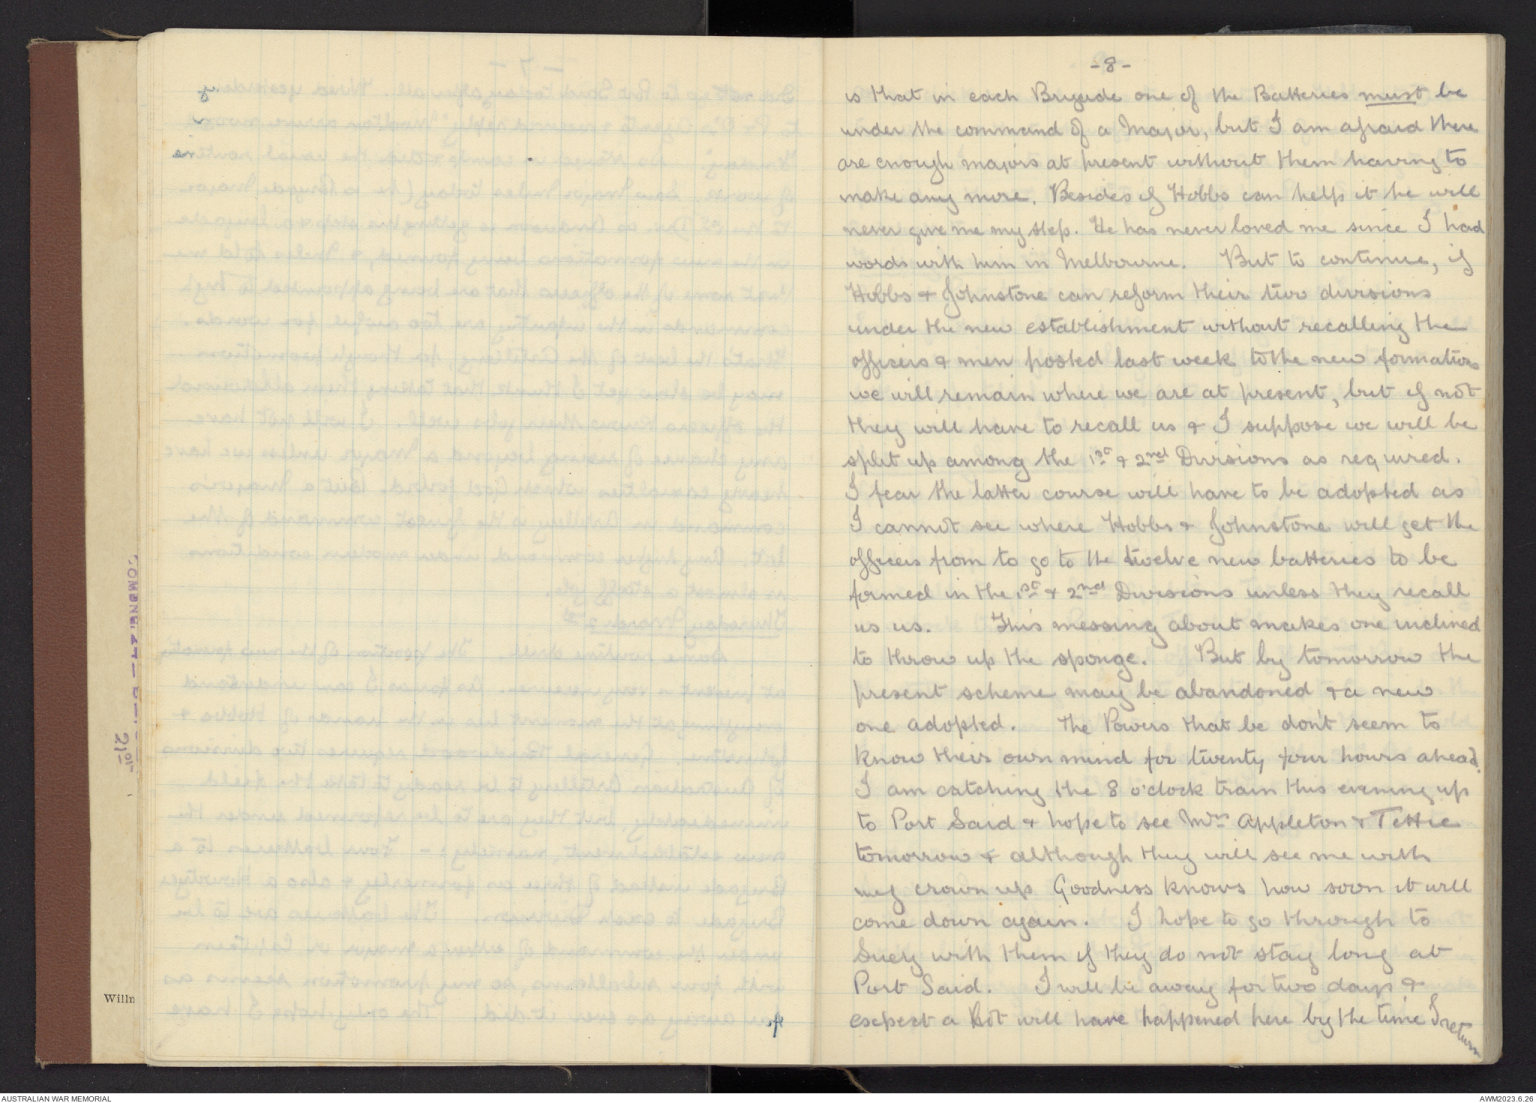 -8-
is that in each Brigade one of the Batteries must be
under the command of a Major, but I am afraid there
are enough majors at present without them having to
make any more. Besides if Hobbs can help it he will
never give me my step. He has never loved me since I had
words with him in Melbourne. But to continue, if
Hobbs & Johnstone can reform their two divisions
under the new establishment without recalling the
officers & men posted last week to the new formations
we will remain where we are at present, but if not
they will have to recall us & I suppose we will be
split up among the 1st & 2nd Divisions as required.
I fear the latter course will have to be adopted as
I cannot see where Hobbs & Johnstone will get the
officers from to go to the twelve new batteries to be
formed in the 1st & 2nd Divisions unless they recall
us us. This messing about makes one inclined
to throw up the sponge. But by tomorrow the
present scheme may be abandoned & a new
one adopted. The Powers that be don't seem to
know their own mind for twenty four hours ahead.
I am catching the 8 o'clock train this evening up
to Port Said & hope to see Mrs Appleton & Tettie
tomorrow & although they will see me with
my crown up Goodness knows how soon it will
come down again. I hope to go through to
Suez with them if they do not stay long at
Port Said. I will be away for two days &
expect a lot will have happened here by the time I return
Willm
AUSTRALIAN WAR MEMORIAL
AWM2023.6.26